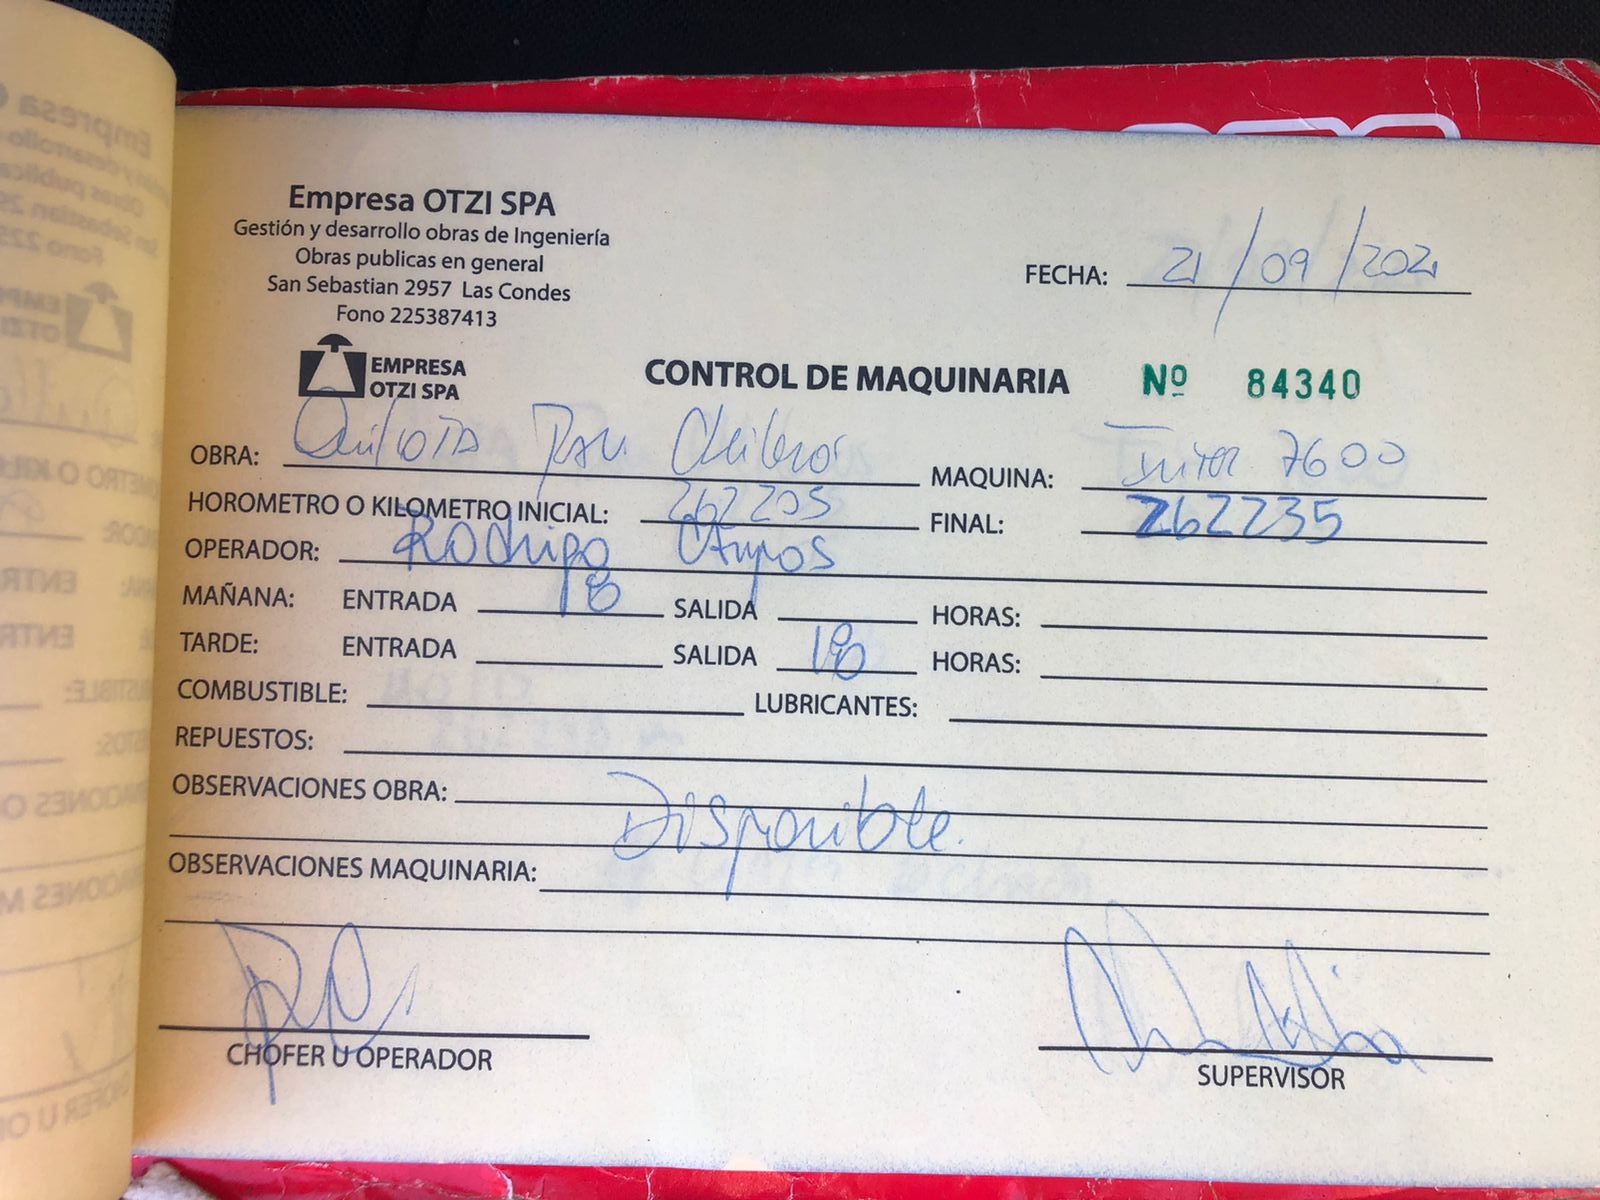 Empresa OTZI SPA
Gestión y desarrollo obras de Ingeniería
Obras publicas en general
San Sebastian 2957 Las Condes
Fono 225387413
FECHA: 21/09/2021
EMPRESA
OTZI SPA
CONTROL DE MAQUINARIA Nº 84340
OBRA: Quillota Pav. MAQUINA: Inter 7600
HOROMETRO O KILOMETRO INICIAL: 262205 FINAL: 262235
OPERADOR: Rodrigo Campos
MAÑANA: ENTRADA 18 SALIDA HORAS:
TARDE: ENTRADA SALIDA 18 HORAS:
COMBUSTIBLE: LUBRICANTES:
REPUESTOS:
OBSERVACIONES OBRA: Disponible.
OBSERVACIONES MAQUINARIA:
CHOFER U OPERADOR
SUPERVISOR